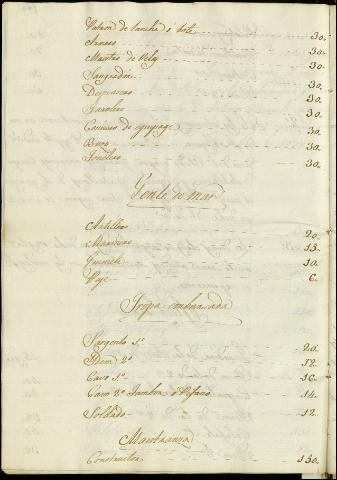 Patron de lancha ó bote 30.
Armero 30.
Maestro de Vela 30.
Sangrador
Despensero 30.
Farolero 30.
Comiso de equipage 30.
Buzo 30.
Tonelero 30.
Gente de mar
Artillero 20.
Marinero 13.
Grumete 10.
Page 6.
Tropa embarcada
Sargento 1º 20.
Idem 2º
Cavo 1º 16.
Cavo 2º Tambor ó Pifano 14.
Soldado 12.
Maestranza
Constructor 130.